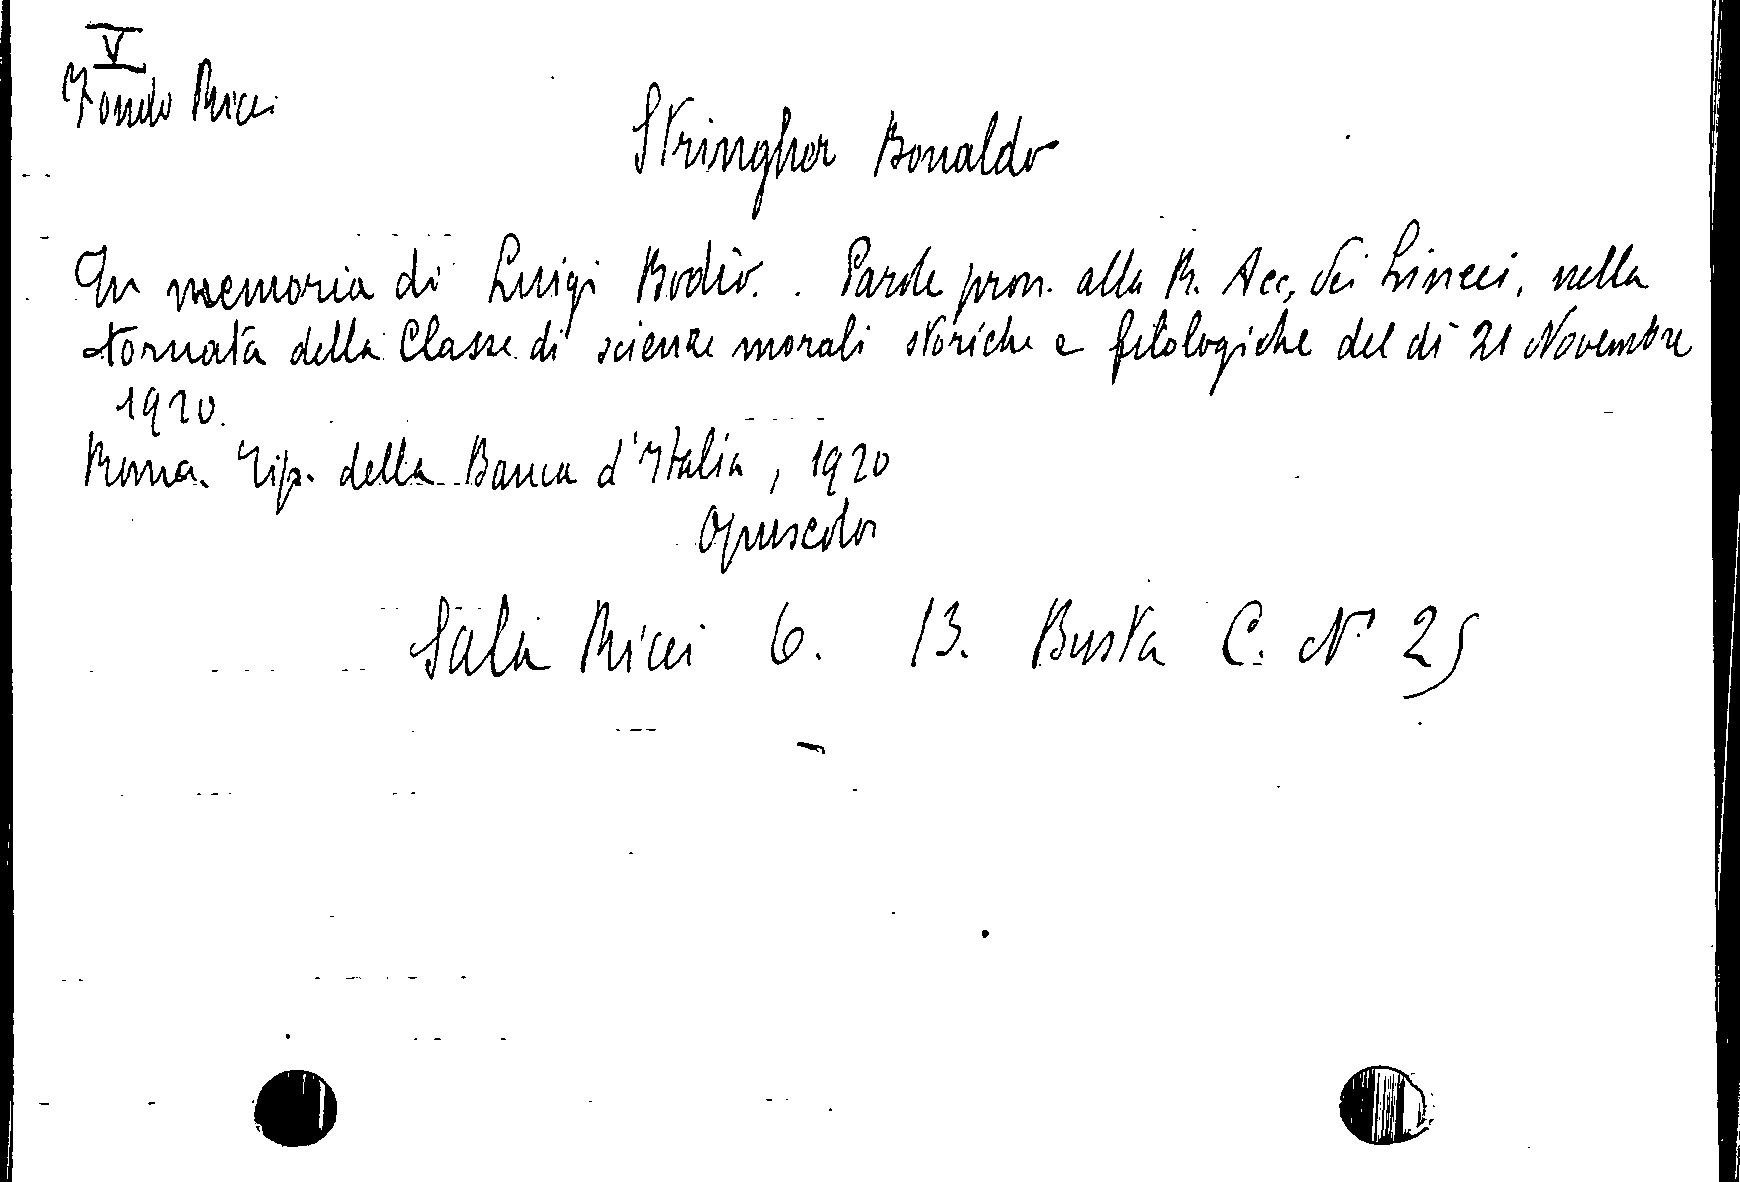 V
Fondo Ricci
Stringher Bonaldo
In memoria di Luigi Bodio. . Parole pron. alla R. Acc. dei Lincei, nella
tornata della Classe di scienze morali storiche e filologiche del dì 21 Novembre
1920.
Roma. Tip. della Banca d'Italia, 1920
Opuscolo
Sala Ricci 6. 13. Busta C. N° 25